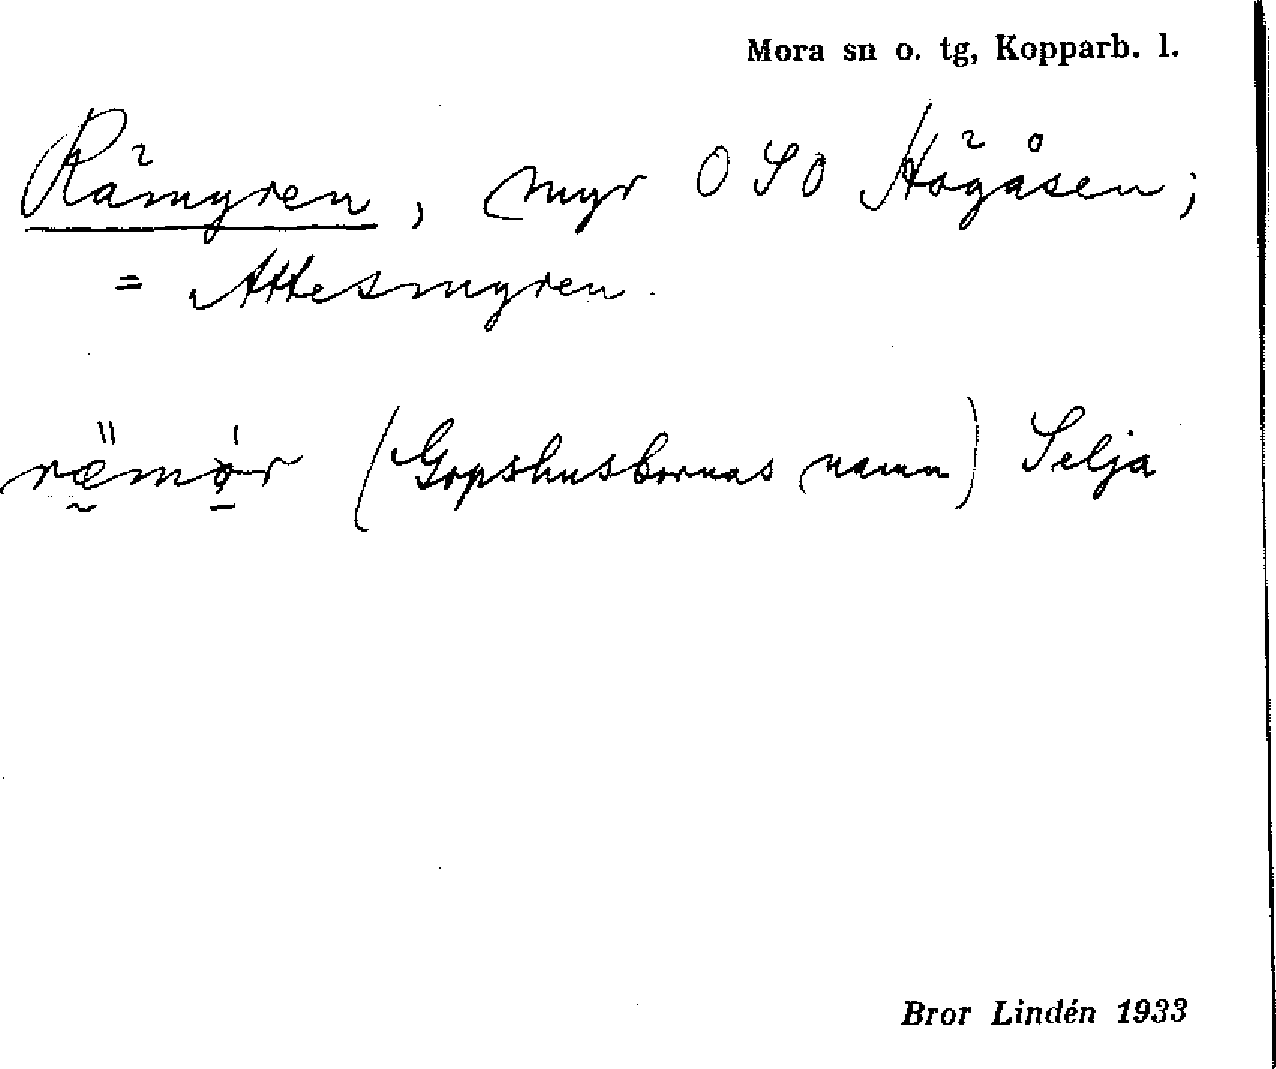 Mora sn o. tg, Kopparb. l.
Rämyren, myr OSO Högåsen;
= Attesmyren.
ræ̰̈mo̠̍r (Gopshusbornas namn) Selja
Bror Lindén 1933